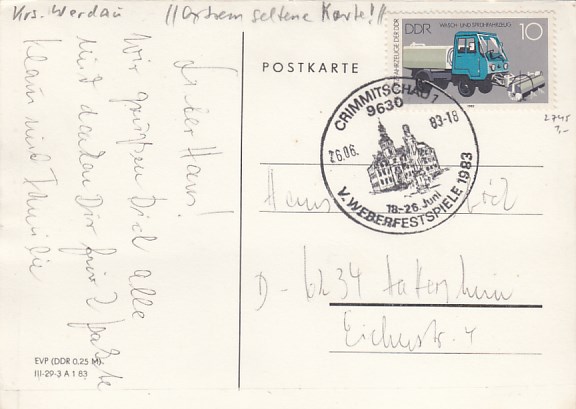 Krs. Werdau
//extrem seltene Karte!//
POSTKARTE
DDR
WASCH- UND SPRÜHFAHRZEUG
10
FAHRZEUGE DER DDR
1982
CRIMMITSCHAU 1
9630
26.06.
83-18
18-26. Juni
V. WEBERFESTSPIELE 1983
2745
Lieber Hans!
Wir grüßen Dich alle
und danken Dir für 2 Pakete
Klaus und Familie
Hans
D-6234 Hattersheim
Eichenstr. 4
EVP (DDR 0.25 M)
III-29-3 A 1 83